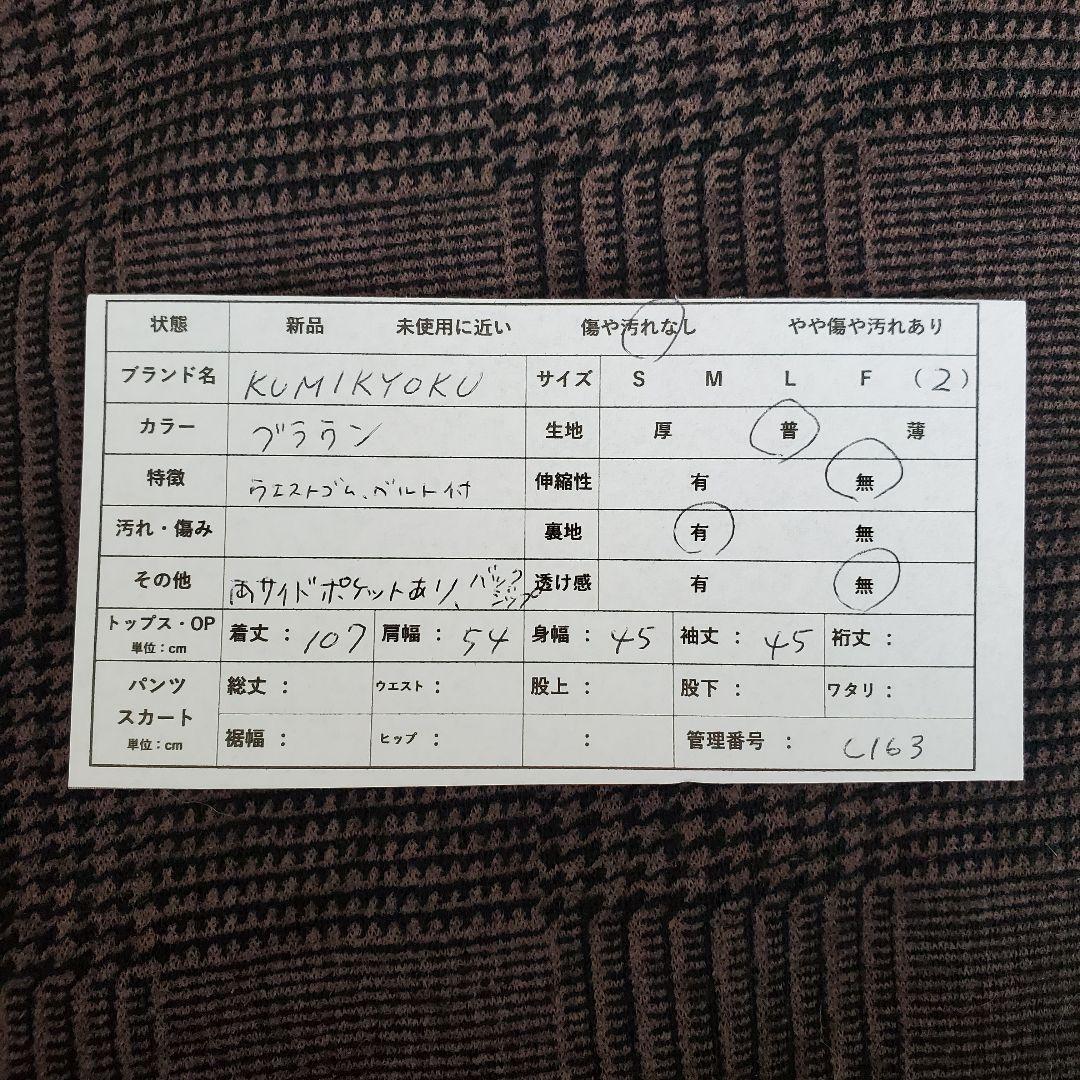 状態 新品 未使用に近い 傷や汚れなし やや傷や汚れあり
ブランド名 KUMIKYOKU サイズ S M L F (2)
カラー ブラウン 生地 厚 普 薄
特徴 ウエストゴム、ベルト付 伸縮性 有 無
汚れ・傷み 裏地 有 無
その他 両サイドポケットあり、バックジップ 透け感 有 無
トップス・OP 単位:cm 着丈: 107 肩幅: 54 身幅: 45 袖丈: 45 裄丈:
パンツ 総丈: ウエスト: 股上: 股下: ワタリ:
スカート
単位:cm 裾幅: ヒップ: : 管理番号: L163